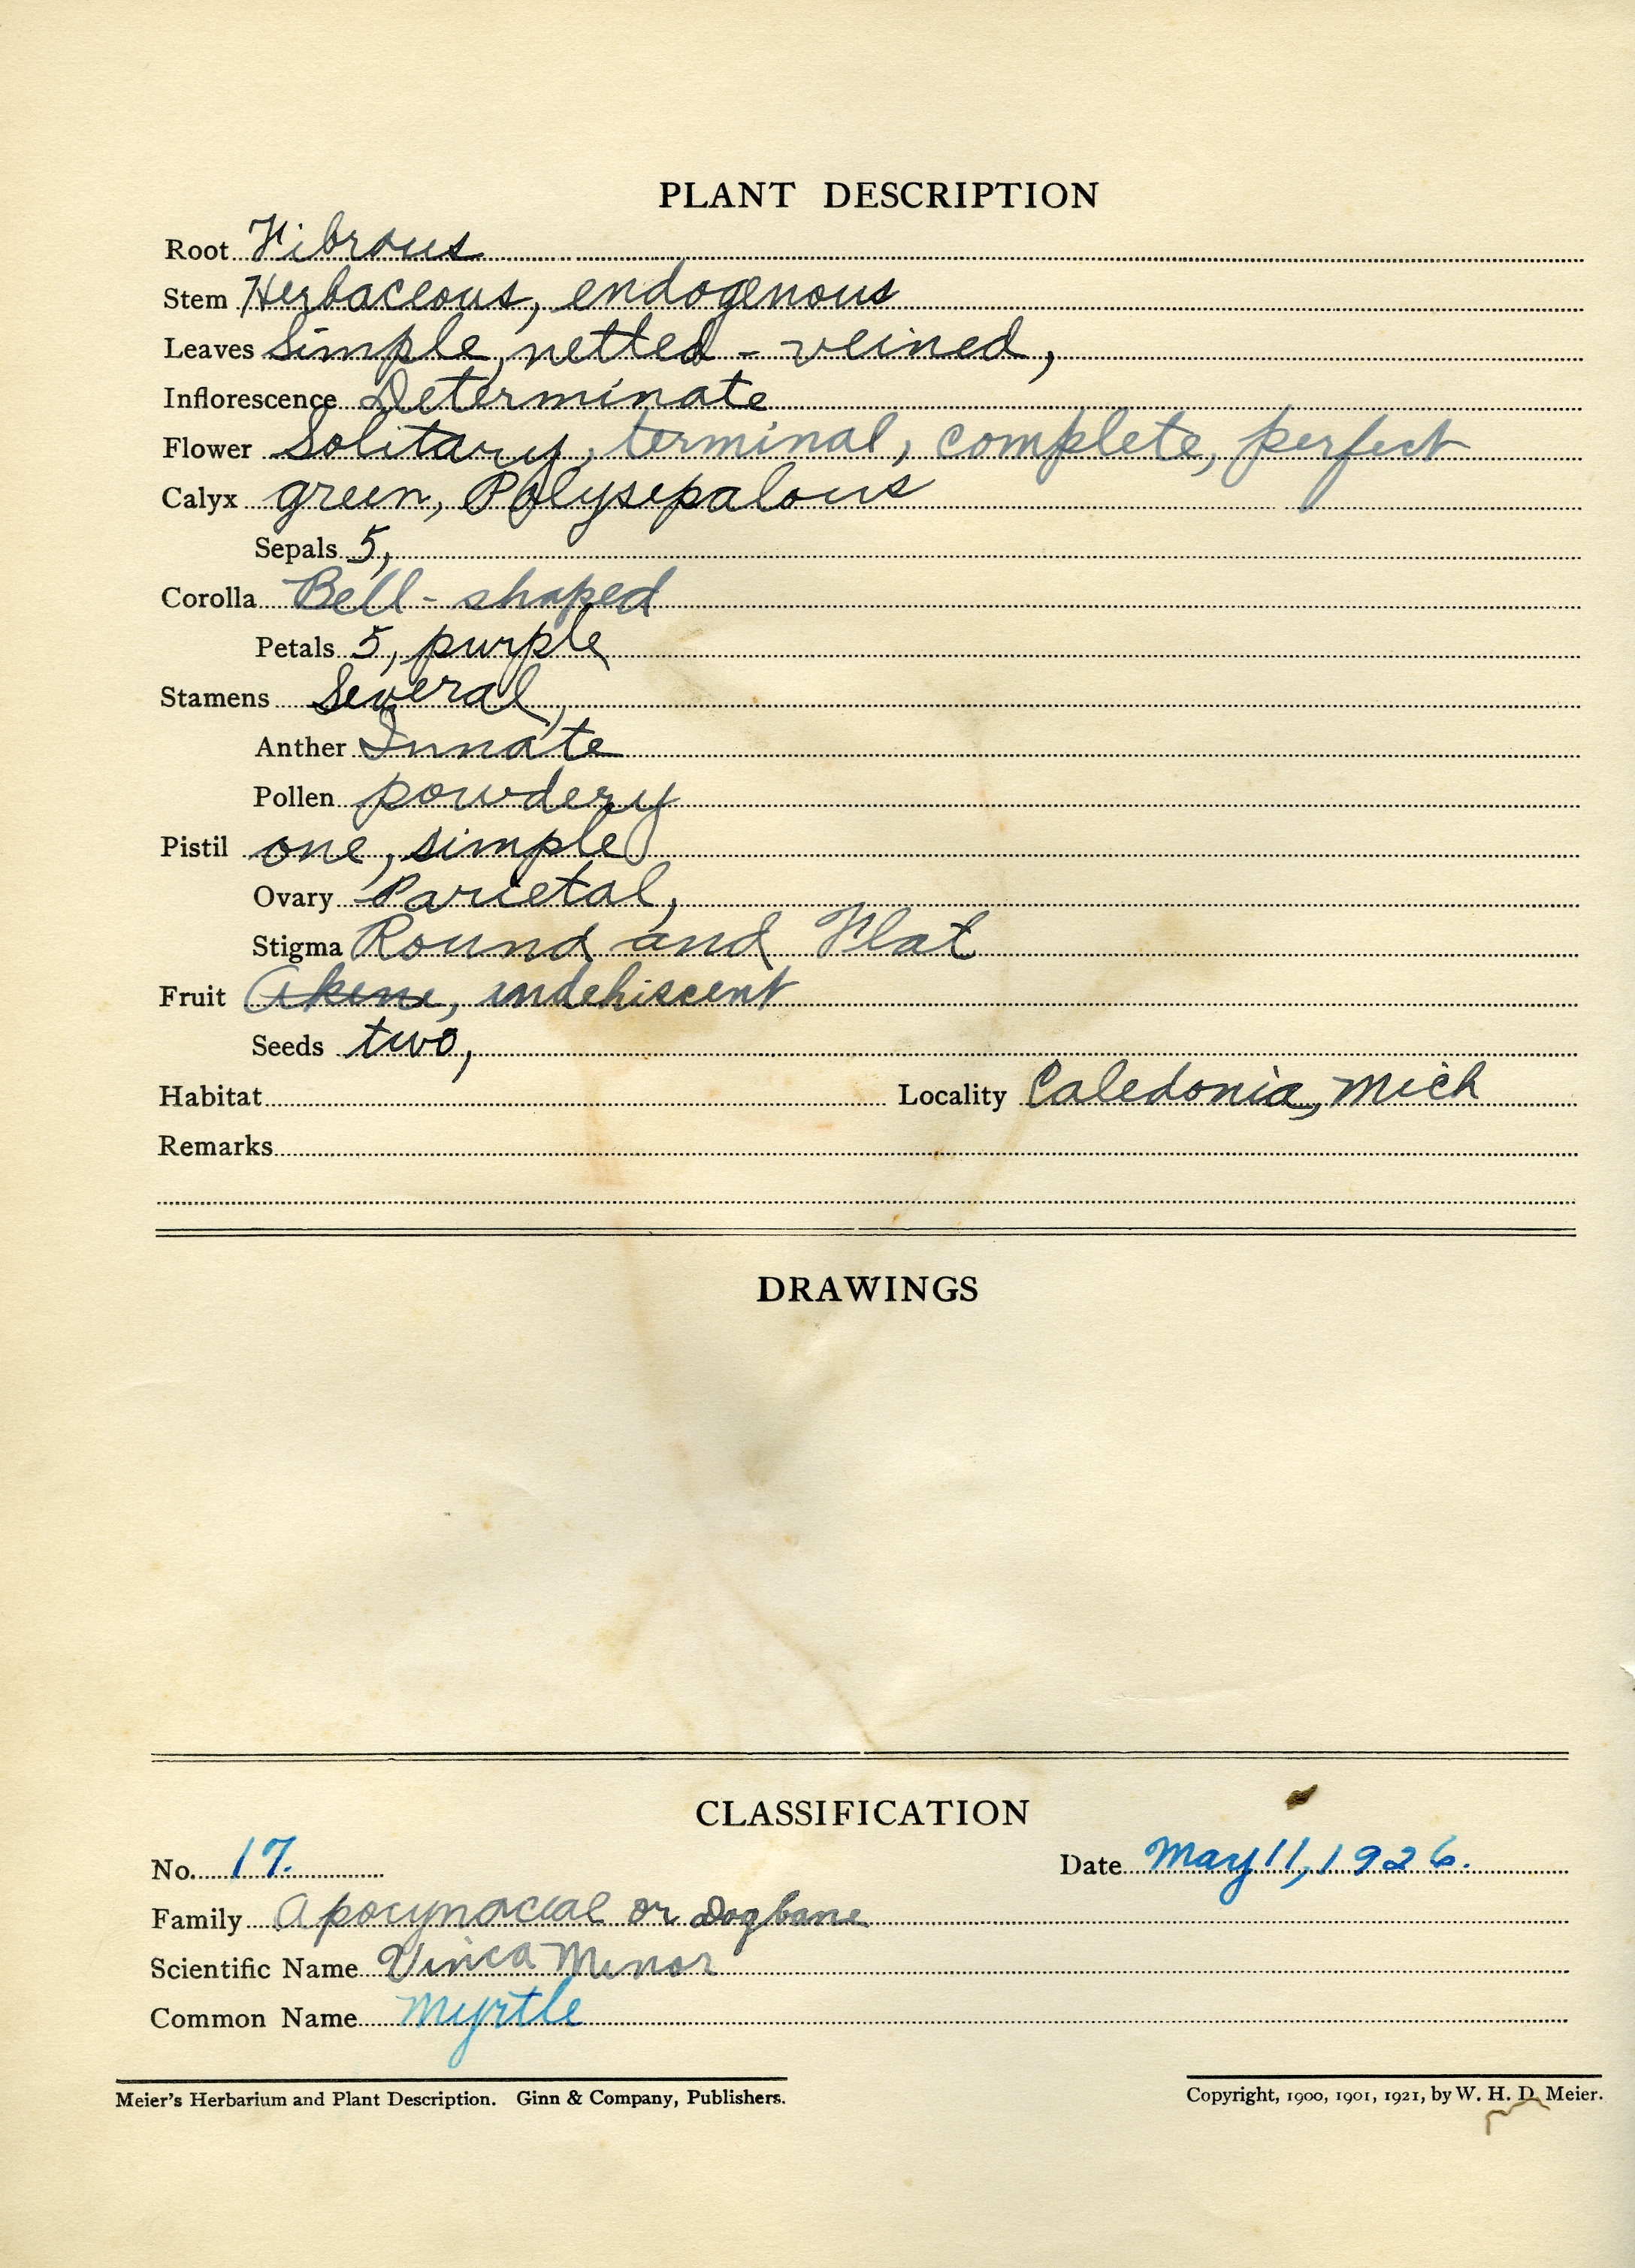 PLANT DESCRIPTION
Root Fibrous
Stem Herbaceous, endogenous
Leaves Simple, netted-veined,
Inflorescence Determinate
Flower Solitary, terminal, complete, perfect
Calyx green, Polysepalous
Sepals 5,
Corolla Bell-shaped
Petals 5, purple
Stamens Several,
Anther Innate
Pollen powdery
Pistil one, simple
Ovary Parietal,
Stigma Round and Flat
Fruit Akene, indehiscent
Seeds two,
Habitat Locality Caledonia, Mich
Remarks
DRAWINGS
CLASSIFICATION
No. 17. Date May 11, 1926.
Family Apocynacial or Dogbane
Scientific Name Vinca Minor
Common Name Myrtle
Meier's Herbarium and Plant Description. Ginn & Company, Publishers. Copyright, 1900, 1901, 1921, by W. H. D. Meier.